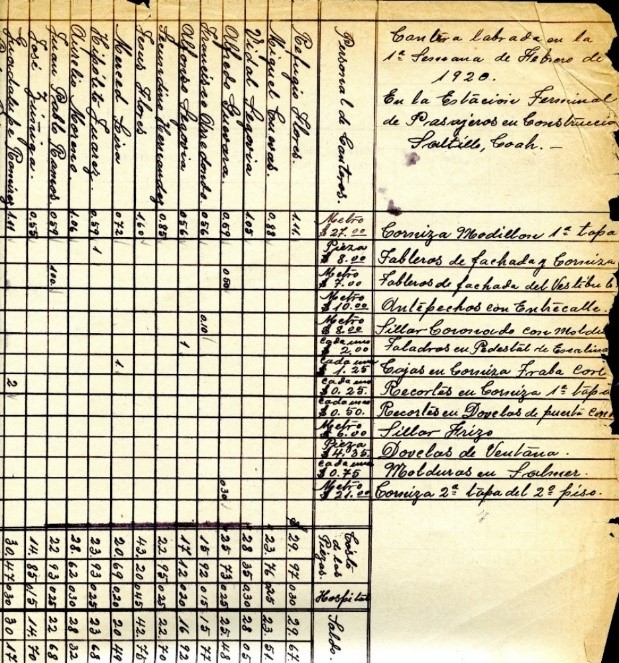 Cantera labrada en la
1ª Semana de Febrero de
1920.
En la Estacion Terminal
de Pasajeros en Construccio
Saltillo, Coah.-
Personal de Canteros.
Metro $27.00 Corniza Modillon 1ª tapa
Pieza $8.00 Tableros de fachada y Corniza
Metro $7.00 Tableros de fachada del Vestibulo
Metro $10.00 Antepechos con Entrecalle.
Metro $8.00 Sillar Coronado con Moldu
Cada uno $2.00 Taladros en Pedestal de Escalina
Cada uno $1.25 Cajas en Corniza Traba cort
Cada uno $0.25 Recortes en Corniza 1ª tapa
Cada uno $0.50 Recortes en Dovelas de puerta con
Metro $6.00 Sillar Frizo
Pieza $4.35 Dovelas de Ventana.
Cada uno $0.75 Molduras en Salmer.
Metro $21.00 Corniza 2ª tapa del 2º piso.
Costo de las Piezas.
Hospital
Saldo.
Refugio Flores. 1.11. $29.97 0.30 29.67
Miguel Cuevas. 0.88 23.76 0.25 23.51
Vidal Segovia 1.05 28.35 0.30 28.05
Alfredo Guevara. 0.69 0.50 0.30 25.73 0.25 25.48
Francisco Arredondo. 0.56 0.10 15.92 0.15 15.77
Alfonso Segovia 0.56 1 17.12 0.20 16.92
Secundino Hernandez 0.85 22.95 0.25 22.70
Luis Flores 1.60 43.20 0.45 42.75
Merced Lira 0.72 1 20.69 0.20 20.49
Hipólito Juarez. 0.59 1 23.93 0.25 23.68
Aurelio Moreno 1.06 28.62 0.30 28.32
Juan Pablo Ramos 0.59 1.00 22.93 0.25 22.68
José Zuñiga. 0.55 14.85 0.15 14.70
Guadalupe Ramirez 1.11 2 30.47 0.30 30.17